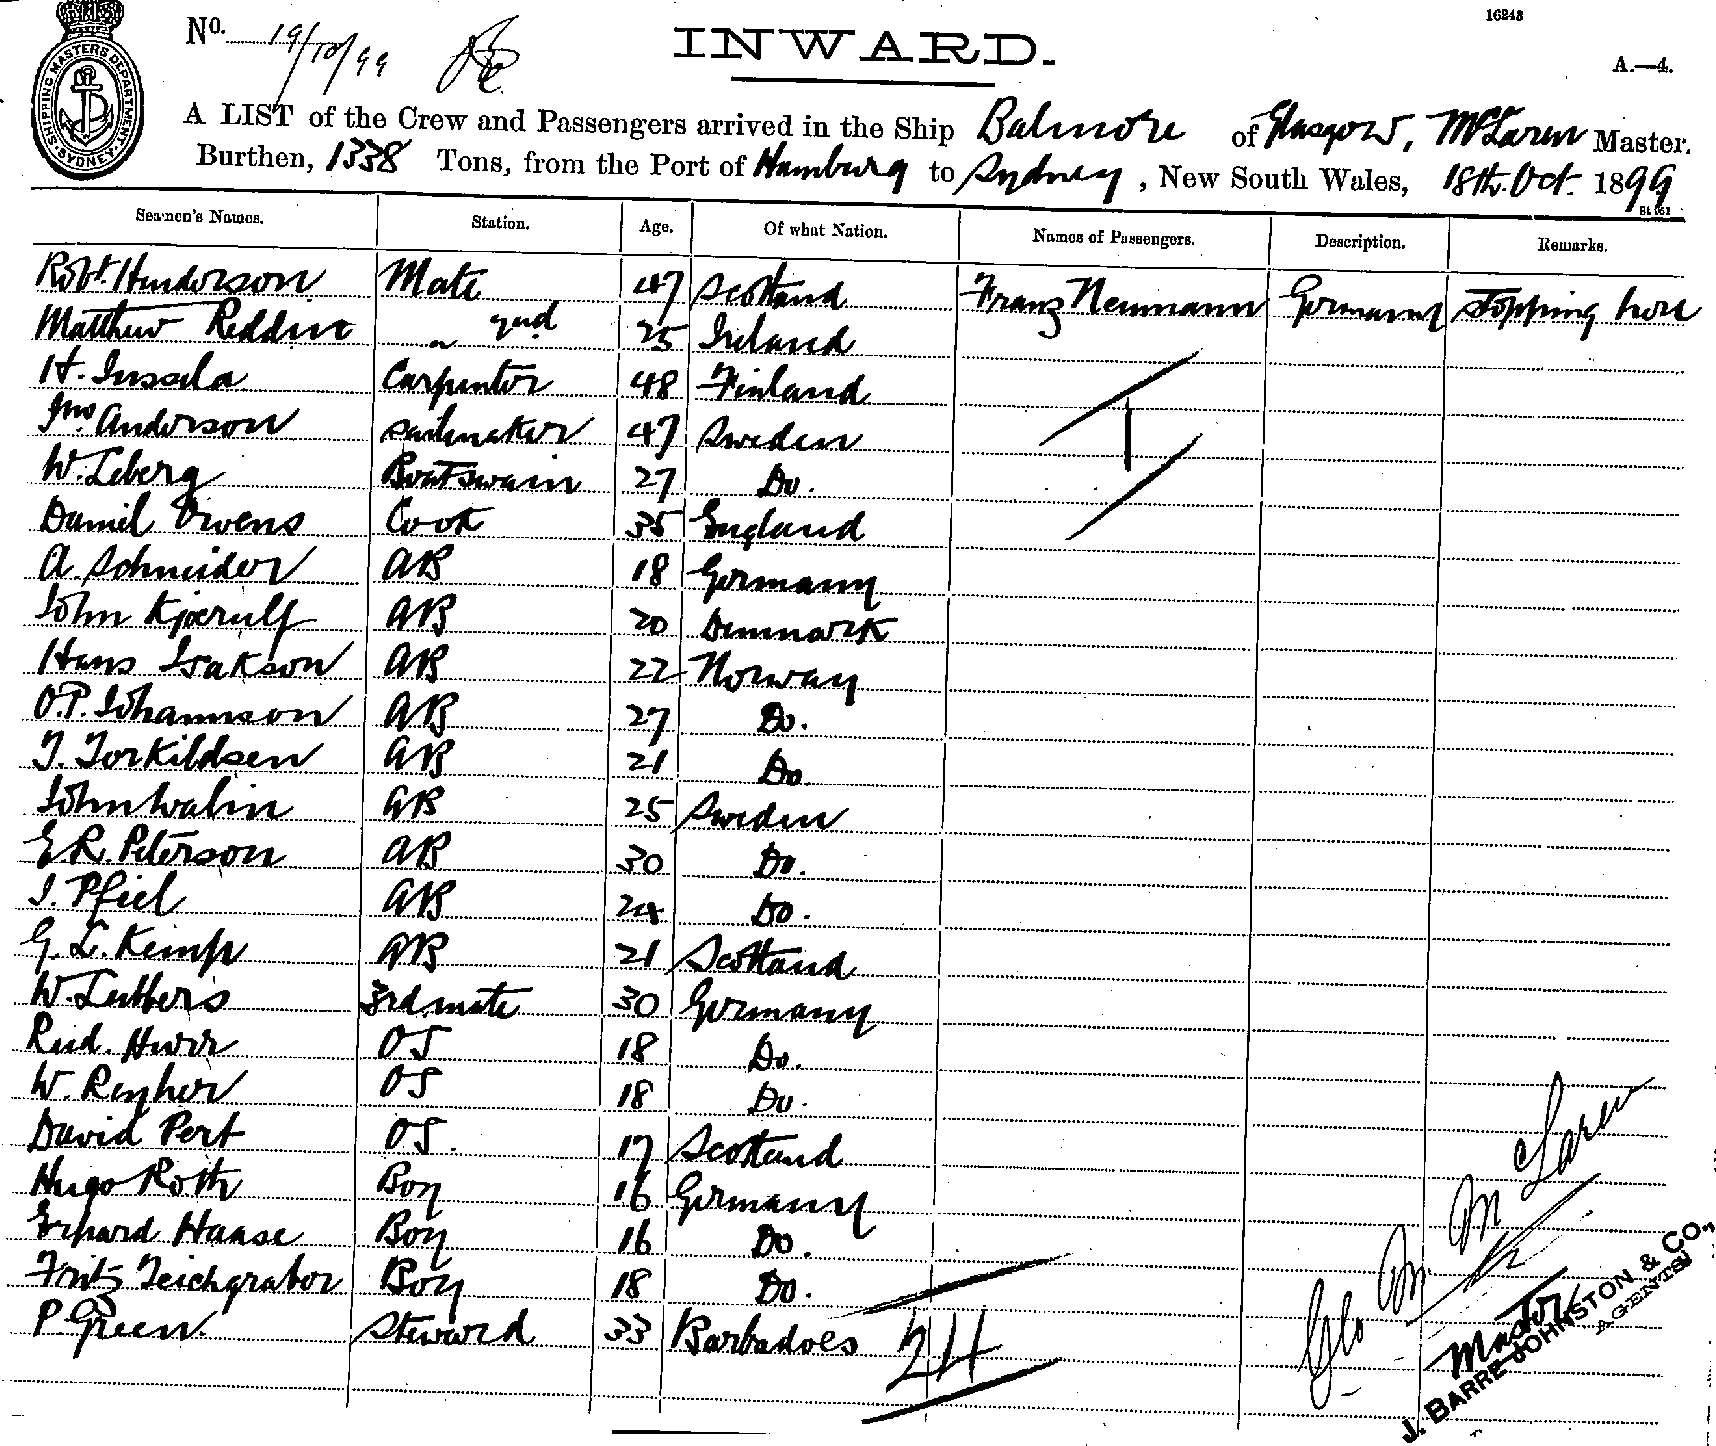 16243
No. 19/10/99
INWARD.
A.—4.
SHIPPING MASTERS DEPARTMENT. SYDNEY.
A LIST of the Crew and Passengers arrived in the Ship Balmore of Glasgow, McLaren Master.
Burthen, 1338 Tons, from the Port of Hamburg to Sydney, New South Wales, 18th Oct. 1899
Seamen's Names. Station. Age. Of what Nation. Names of Passengers. Description. Remarks.
Robt. Henderson Mate 47 Scotland Franz Neumann Germany Stopping here
Matthew Reddin " 2nd 25 Ireland
H. Inssela Carpenter 48 Finland
Jno. Anderson sailmaker 47 Sweden 1
W. Leberg Boatswain 27 Do.
Daniel Owens Cook 35 England
A. Schneider AB 18 Germany
John Kjoerulf AB 20 Denmark
Hans Isakson AB 22 Norway
O.P. Johannson AB 27 Do.
T. Torkildsen AB 21 Do
John Walin AB 25 Sweden
E.R. Peterson AB 30 Do.
J. Pfiel AB 24 Do.
G. L. Kemp AB 21 Scotland
W. Lubbers 3rd mate 30 Germany
Rud. Hurr OS 18 Do.
W. Reyher OS 18 Do.
David Pert OS. 17 Scotland
Hugo Roth Boy 16 Germany
Erhard Haase Boy 16 Do.
Fritz Teichgrabor Boy 18 Do.
P. Green. Steward 33 Barbadoes 24
Geo M McLaren
Master
J. BARRE JOHNSTON & CO.,
AGENTS